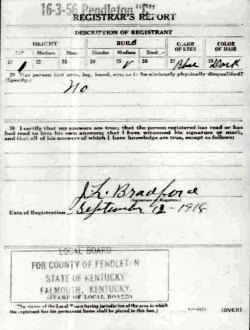 16-3-56 Pendleton "C"
REGISTRAR'S REPORT
DESCRIPTION OF REGISTRANT
HEIGHT BUILD COLOR OF EYES COLOR OF HAIR
Medium Slender Medium Stout
21 22 23 24 25 26 27 Blue 28 Dark
29 Has person lost arm, leg, hand, eye, or is he obviously physically disqualified?
(Specify.)
No
30 I certify that my answers are true; that the person registered has read or has
had read to him his own answers; that I have witnessed his signature or mark,
and that all of his answers of which I have knowledge are true, except as follows:
Bradford
(Signature of Registrar)
Date of Registration September 12-1918
LOCAL BOARD
FOR COUNTY OF PENDLETON
STATE OF KENTUCKY
FALMOUTH, KENTUCKY.
(STAMP OF LOCAL BOARD)
(The stamp of the Local Board having jurisdiction of the area in which
the registrant has his permanent home shall be placed in this box.)
(OVER)